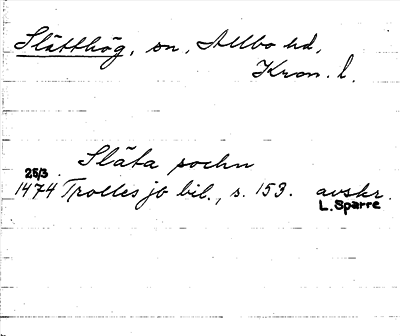 Slätthög, sn, Allbo hd,
Kron. l.
Släta sochn
25/3
1474 Trolles jb bil., s. 153. avskr.
L. Sparre